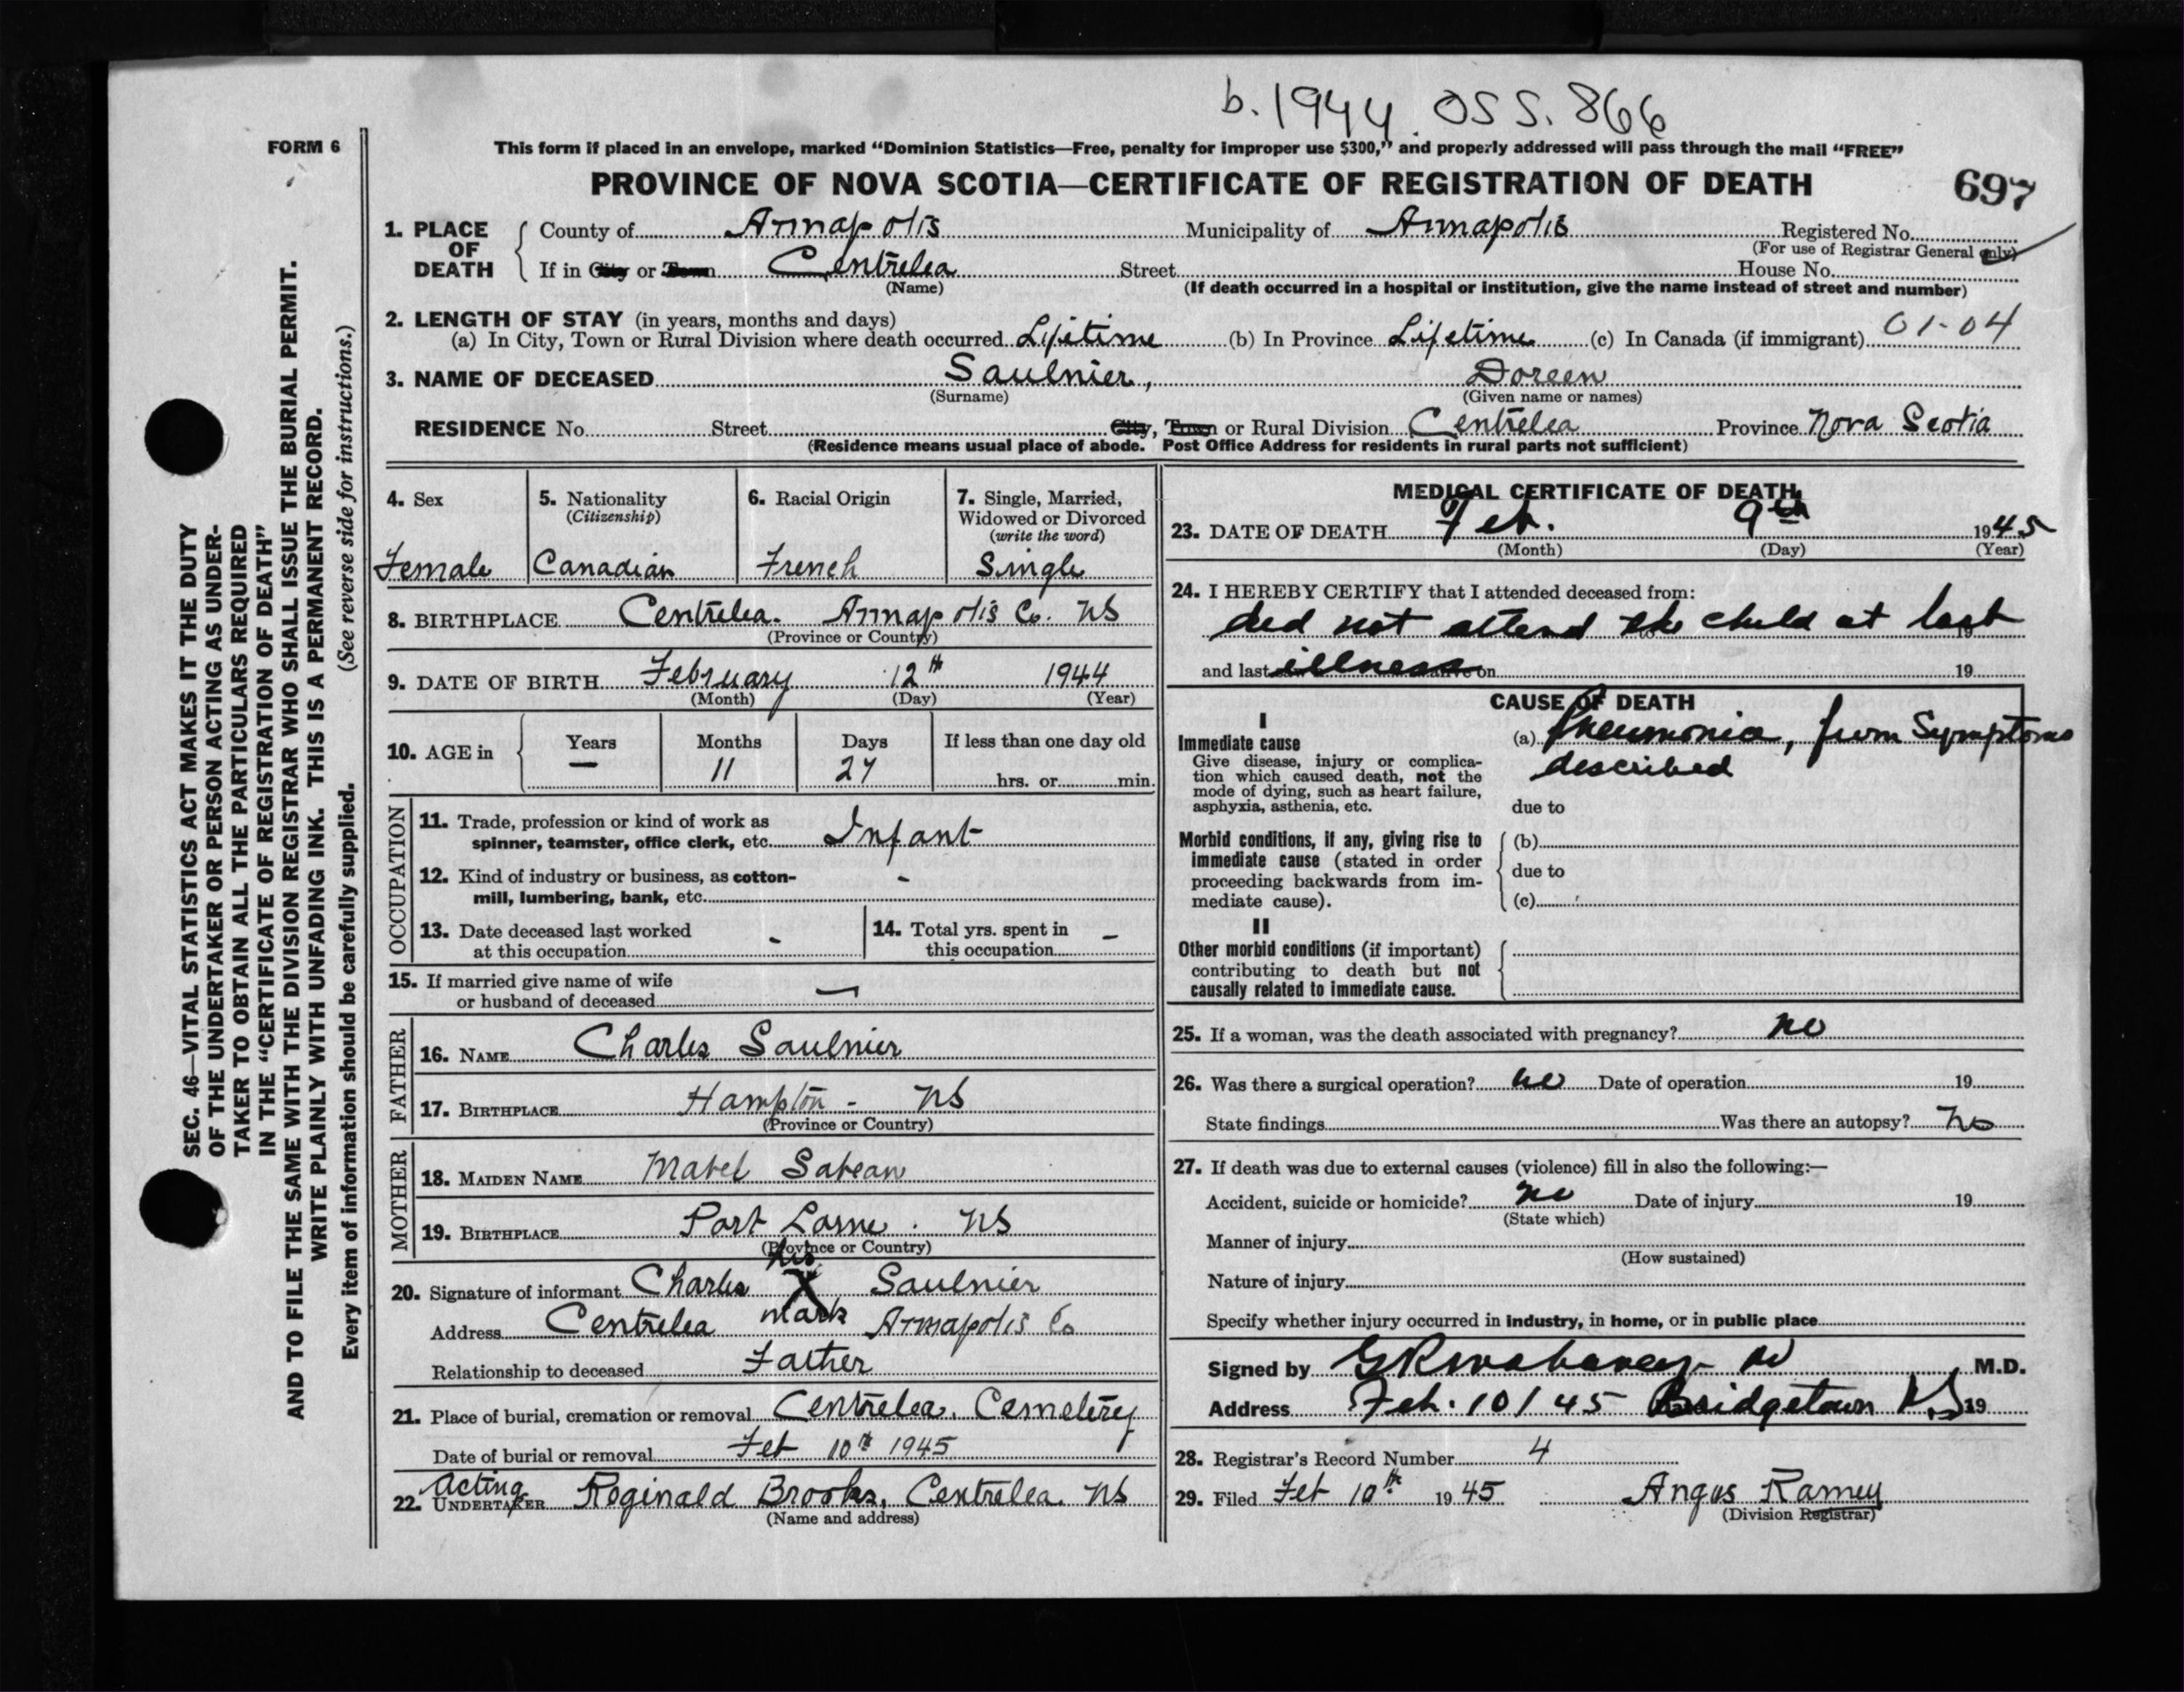 b. 1944. OSS. 866
FORM 6
This form if placed in an envelope, marked “Dominion Statistics—Free, penalty for improper use $300,” and properly addressed will pass through the mail “FREE”
PROVINCE OF NOVA SCOTIA—CERTIFICATE OF REGISTRATION OF DEATH
697
1. PLACE OF DEATH County of Annapolis Municipality of Annapolis Registered No.
(For use of Registrar General only)
If in City or Town Centrelea Street House No.
(Name) (If death occurred in a hospital or institution, give the name instead of street and number)
2. LENGTH OF STAY (in years, months and days)
(a) In City, Town or Rural Division where death occurred Lifetime (b) In Province Lifetime (c) In Canada (if immigrant) 01-04
3. NAME OF DECEASED Saulnier, Doreen
(Surname) (Given name or names)
RESIDENCE No. Street City, Town or Rural Division Centrelea Province Nova Scotia
(Residence means usual place of abode. Post Office Address for residents in rural parts not sufficient)
4. Sex
Female
5. Nationality
(Citizenship)
Canadian
6. Racial Origin
French
7. Single, Married,
Widowed or Divorced
(write the word)
Single
8. BIRTHPLACE Centrelea. Annapolis Co. NS
(Province or Country)
9. DATE OF BIRTH February 12th 1944
(Month) (Day) (Year)
10. AGE in Years Months Days If less than one day old
— 11 27 hrs. or min.
OCCUPATION
11. Trade, profession or kind of work as
spinner, teamster, office clerk, etc. Infant
12. Kind of industry or business, as cotton-
mill, lumbering, bank, etc. -
13. Date deceased last worked
at this occupation -
14. Total yrs. spent in
this occupation -
15. If married give name of wife
or husband of deceased —
FATHER
16. NAME Charles Saulnier
17. BIRTHPLACE Hampton - NS
(Province or Country)
MOTHER
18. MAIDEN NAME Mabel Sabean
19. BIRTHPLACE Port Lorne. NS
(Province or Country)
his
20. Signature of informant Charles X Saulnier
mark
Address Centrelea Annapolis Co
Relationship to deceased Father
21. Place of burial, cremation or removal Centrelea. Cemetery
Date of burial or removal Feb 10th 1945
Acting
22. UNDERTAKER Reginald Brooks, Centrelea. NS
(Name and address)
MEDICAL CERTIFICATE OF DEATH
23. DATE OF DEATH Feb. 9th 1945
(Month) (Day) (Year)
24. I HEREBY CERTIFY that I attended deceased from:
did not attend the child at last
to 19
and last illness alive on 19
CAUSE OF DEATH
I
Immediate cause
Give disease, injury or complica-
tion which caused death, not the
mode of dying, such as heart failure,
asphyxia, asthenia, etc.
(a) Pneumonia, from Symptoms
described
due to
Morbid conditions, if any, giving rise to
immediate cause (stated in order
proceeding backwards from im-
mediate cause).
(b)
due to
(c)
II
Other morbid conditions (if important)
contributing to death but not
causally related to immediate cause.
25. If a woman, was the death associated with pregnancy? no
26. Was there a surgical operation? no Date of operation 19
State findings Was there an autopsy? No
27. If death was due to external causes (violence) fill in also the following:—
Accident, suicide or homicide? no Date of injury 19
(State which)
Manner of injury
(How sustained)
Nature of injury
Specify whether injury occurred in industry, in home, or in public place
Signed by M.D.
Address Feb. 10/45 Bridgetown N.S 19
28. Registrar's Record Number 4
29. Filed Feb 10th 1945 Angus Ramey
(Division Registrar)
SEC. 46—VITAL STATISTICS ACT MAKES IT THE DUTY
OF THE UNDERTAKER OR PERSON ACTING AS UNDER-
TAKER TO OBTAIN ALL THE PARTICULARS REQUIRED
IN THE “CERTIFICATE OF REGISTRATION OF DEATH”
AND TO FILE THE SAME WITH THE DIVISION REGISTRAR WHO SHALL ISSUE THE BURIAL PERMIT.
WRITE PLAINLY WITH UNFADING INK. THIS IS A PERMANENT RECORD.
Every item of information should be carefully supplied. (See reverse side for instructions.)